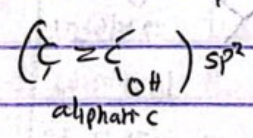 (C=C
OH) sp²
aliphatic